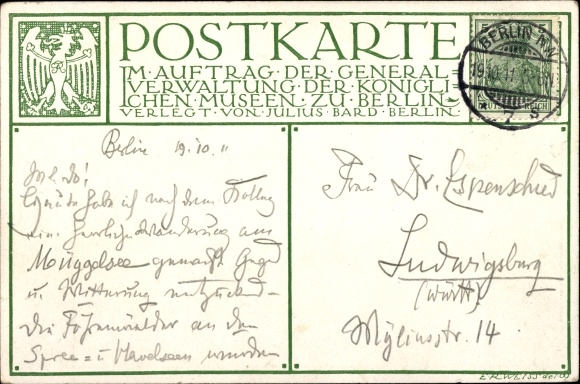 POSTKARTE
IM·AUFTRAG·DER·GENERAL-
VERWALTUNG·DER·KÖNIGLI-
CHEN·MUSEEN·ZU·BERLIN-
VERLEGT·VON·JULIUS·BARD·BERLIN
BERLIN N.W.
19.10.11
7
DEUTSCHES REICH
Berlin 19.10.11
habe ich nach dem
eine herrliche Wanderung am
Müggelsee gemacht. Gegend
u. Witterung entzückend –
die Föhrenwälder an den
Spree = u Havelseen wurden
Frau Dr. Espenschied
Ludwigsburg
(Württ)
Mylinsstr. 14
E·R·WEISS